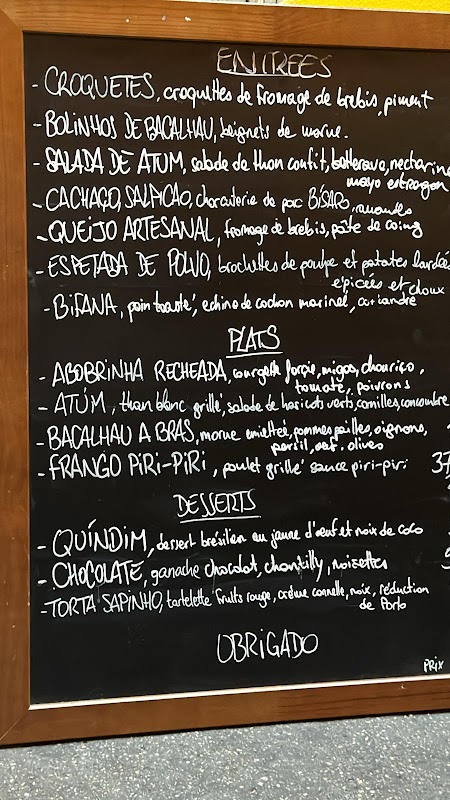 ENTREES
- CROQUETES, croquettes de fromage de brebis, piment
- BOLINHOS DE BACALHAU, beignets de morue.
- SALADA DE ATUM, salade de thon confit, betterave, nectarine
mayo estragon
- CACHAÇO, SALPICAO, charcuterie de porc BÍSARO, amandes
- QUEIJO ARTESANAL, fromage de brebis, pâte de coing
- ESPETADA DE POLVO, brochettes de poulpe et patates lardées
épicées et choux
- BIFANA, pain toasté, echine de cochon mariné, coriandre
PLATS
- ABOBRINHA RECHEADA, courgette farçie, migas, chouriço,
tomate, poivrons
- ATÚM, thon blanc grillé, salade de haricots verts, cornilles, concombre
- BACALHAU A BRAS, morue emiettée, pommes pailles, oignons,
persil, oeuf, olives
- FRANGO PIRI-PIRI, poulet grillé sauce piri-piri 37
DESSERTS
- QUÍNDIM, dessert brésilien au jaune d'oeuf et noix de coco
- CHOCOLATE, ganache chocolat, chantilly, noisettes
- TORTA SAPINHO, tartelette fruits rouge, crème cannelle, noix, réduction
de Porto
OBRIGADO
PRIX